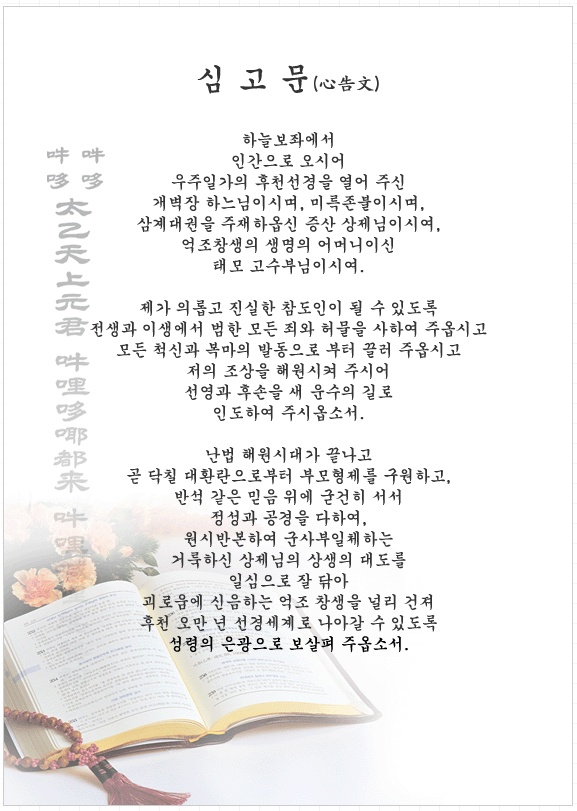 심 고 문(心告文)
하늘보좌에서
인간으로 오시어
우주일가의 후천선경을 열어 주신
개벽장 하느님이시며, 미륵존불이시며,
삼계대권을 주재하옵신 증산 상제님이시여,
억조창생의 생명의 어머니이신
태모 고수부님이시여.
제가 의롭고 진실한 참도인이 될 수 있도록
전생과 이생에서 범한 모든 죄와 허물을 사하여 주옵시고
모든 척신과 복마의 발동으로 부터 끌러 주옵시고
저의 조상을 해원시켜 주시어
선영과 후손을 새 운수의 길로
인도하여 주시옵소서.
난법 해원시대가 끝나고
곧 닥칠 대환란으로부터 부모형제를 구원하고,
반석 같은 믿음 위에 굳건히 서서
정성과 공경을 다하여,
원시반본하여 군사부일체하는
거룩하신 상제님의 상생의 대도를
일심으로 잘 닦아
괴로움에 신음하는 억조 창생을 널리 건져
후천 오만 년 선경세계로 나아갈 수 있도록
성령의 은광으로 보살펴 주옵소서.
吽哆
吽哆
太乙天上元君 吽哩哆㖿都来 吽哩